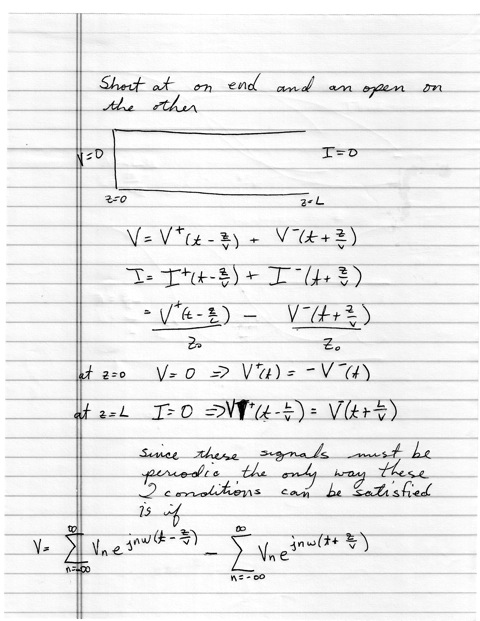 Short at on end and an open on
the other
V=0
I=0
z=0
z=L
V = V⁺(t - z/v) + V⁻(t + z/v)
I = I⁺(t - z/v) + I⁻(t + z/v)
= V⁺(t - z/c)/Z₀ - V⁻(t + z/v)/Z₀
at z=0 V=0 => V⁺(t) = -V⁻(t)
at z=L I=0 => V⁺(t - L/v) = V⁻(t + L/v)
since these signals must be
periodic the only way these
2 conditions can be satisfied
is if
V= ∑_{n=-∞}^{∞} Vₙ e^{jnω(t - z/v)} - ∑_{n=-∞}^{∞} Vₙ e^{jnω(t + z/v)}